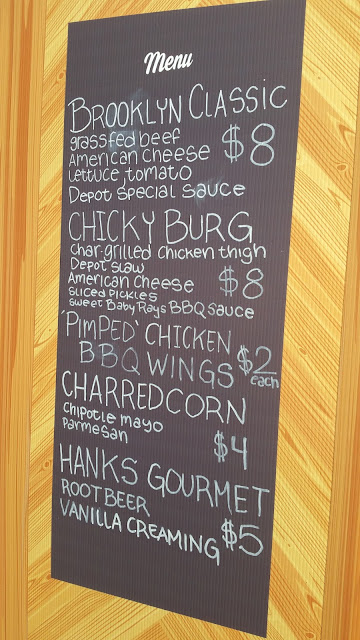 Menu
BROOKLYN CLASSIC
grassfed beef
American Cheese $8
Lettuce, tomato
Depot Special Sauce
CHICKY BURG
char-grilled chicken thigh
Depot slaw
American Cheese $8
Sliced Pickles
Sweet Baby Rays BBQ Sauce
'PIMPED' CHICKEN
BBQ WINGS $2 each
CHARRED CORN
Chipotle mayo
Parmesan $4
HANKS GOURMET
ROOTBEER
VANILLA CREAMING $5